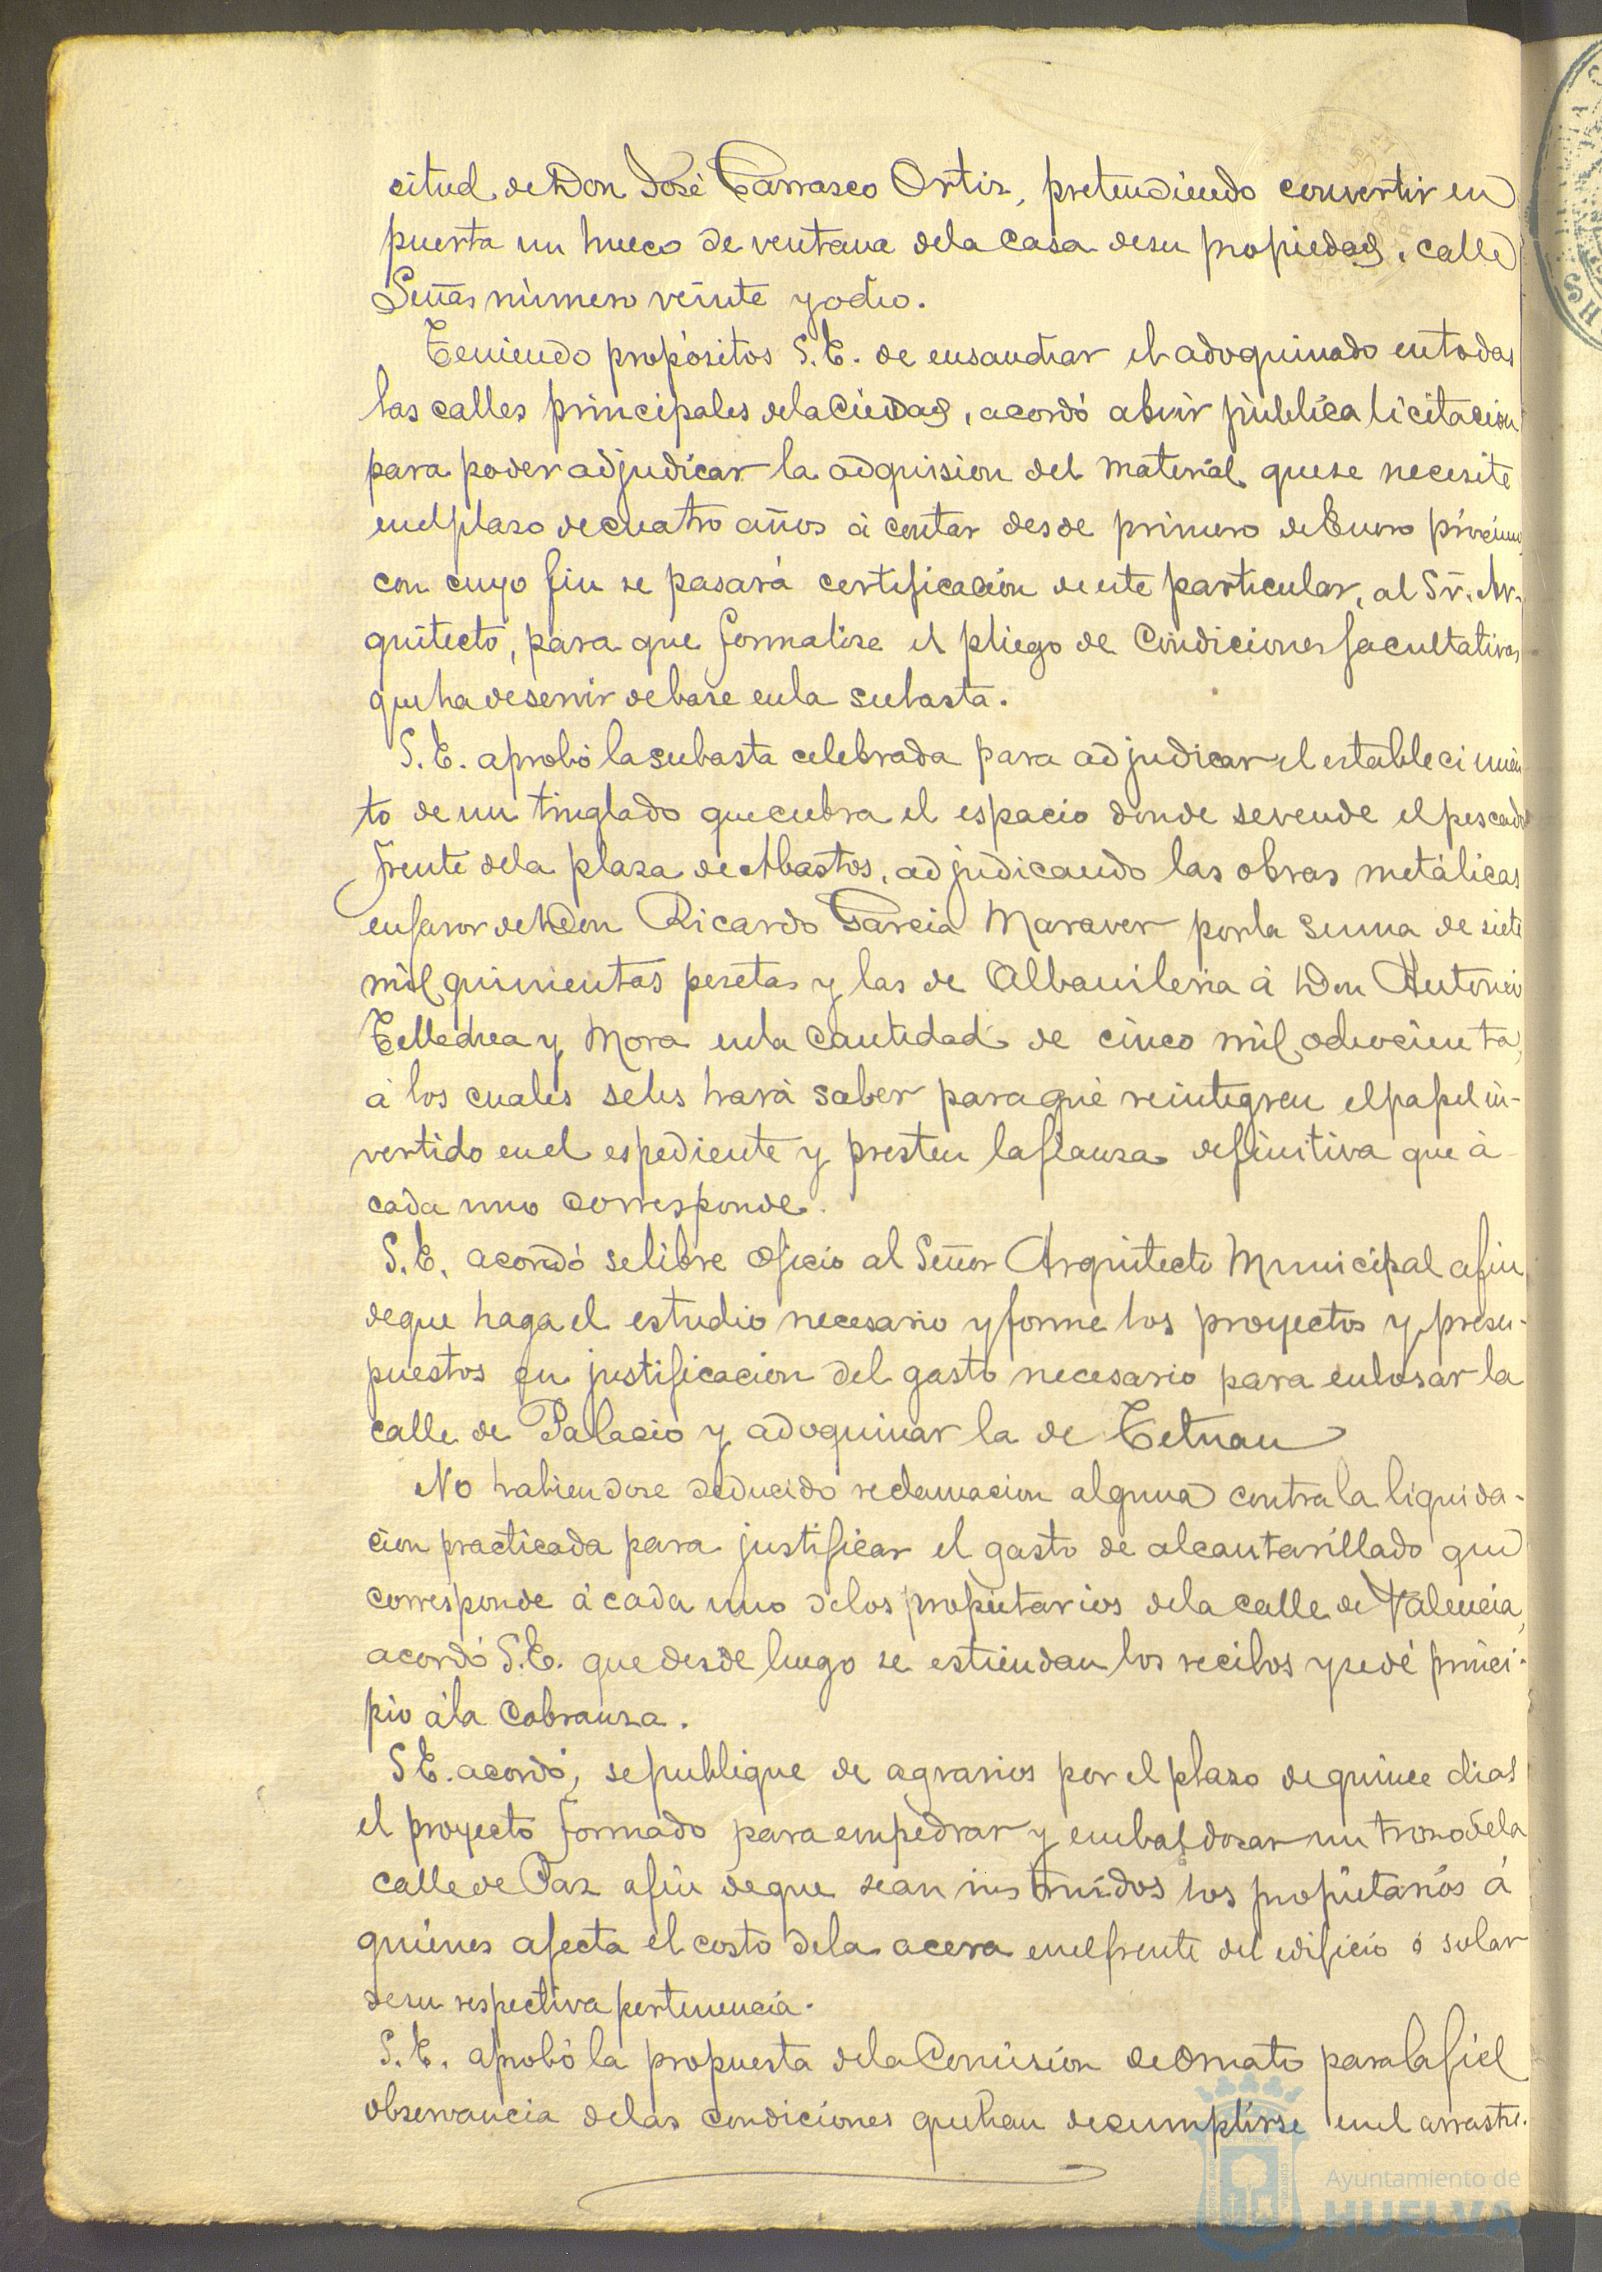 citud de Don José Carrasco Ortiz, pretendiendo convertir en
puerta un hueco de ventana de la casa de su propiedad, calle
Señas número veinte y ocho.
Teniendo propósitos S.E. de ensanchar el adoquinado en todas
las calles principales de la Ciudad, acordó abrir pública licitacion
para poder adjudicar la adquision del material que se necesite
en el plazo de cuatro años á contar desde primero de Enero próximo,
con cuyo fin se pasará certificación de este particular, al Sr. Ar-
quitecto, para que formalize el pliego de Condiciones facultativas
que ha de servir de base en la subasta.
S.E. aprobó la subasta celebrada para adjudicar el establecimien-
to de un tinglado que cubra el espacio donde se vende el pescado
frente de la plaza de Abastos, adjudicando las obras metálicas
en favor de Don Ricardo Garcia Maraver por la suma de siete
mil quinientas pesetas y las de Albañileria á Don Antonio
Telledrea y Mora en la Cantidad de cinco mil ochocienta,
á los cuales se les hará saber para qué reintegren el papel in-
vertido en el espediente y presten la fianza definitiva que á
cada uno corresponde.
S.E. acordó se libre oficio al Señor Arquitecto Municipal a fin
de que haga el estudio necesario y forme los proyectos y presu-
puestos en justificacion del gasto necesario para enlosar la
calle de Palacio y adoquinar la de Tetuan
No habiendose deducido reclamacion alguna contra la liquida-
cion practicada para justificar el gasto de alcantarillado que
corresponde á cada uno de los propietarios de la calle de Valencia,
acordó S.E. que desde luego se estiendan los recibos y se dé princi-
pio á la Cobranza.
S.E. acordó, se publique de agravios por el plazo de quince dias
el proyecto formado para empedrar y embaldosar un trozo de la
calle de Paz a fin de que sean instruidos los propietarios á
quienes afecta el costo de la acera en el frente del edificio ó solar
de su respectiva pertenencia.
S.E. aprobó la propuesta de la Comisión de Ornato para la fiel
observancia de las condiciones que han de cumplirse en el arrastre.
Ayuntamiento de
HUELVA